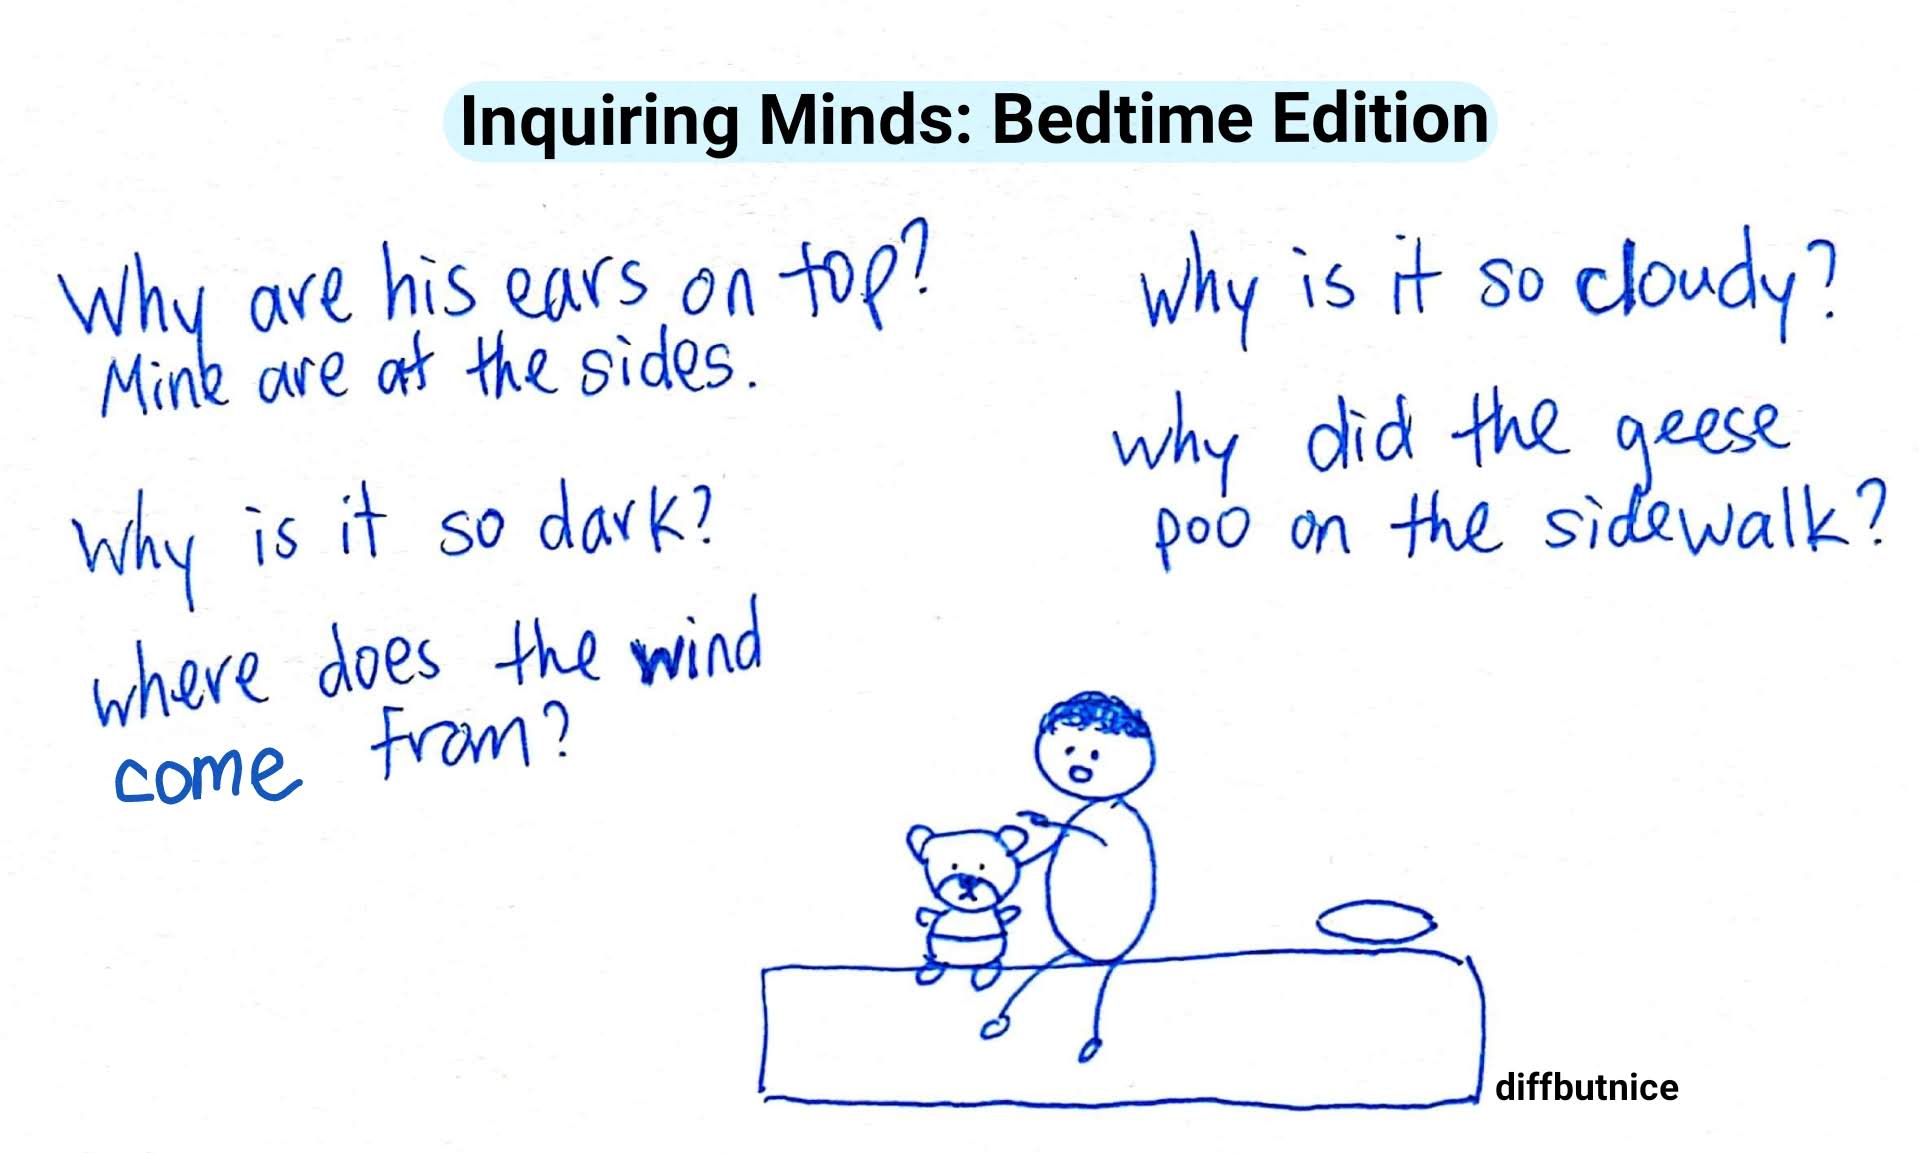 Inquiring Minds: Bedtime Edition
Why are his ears on top?
Mine are at the sides.
Why is it so dark?
where does the wind
come from?
why is it so cloudy?
why did the geese
poo on the sidewalk?
diffbutnice